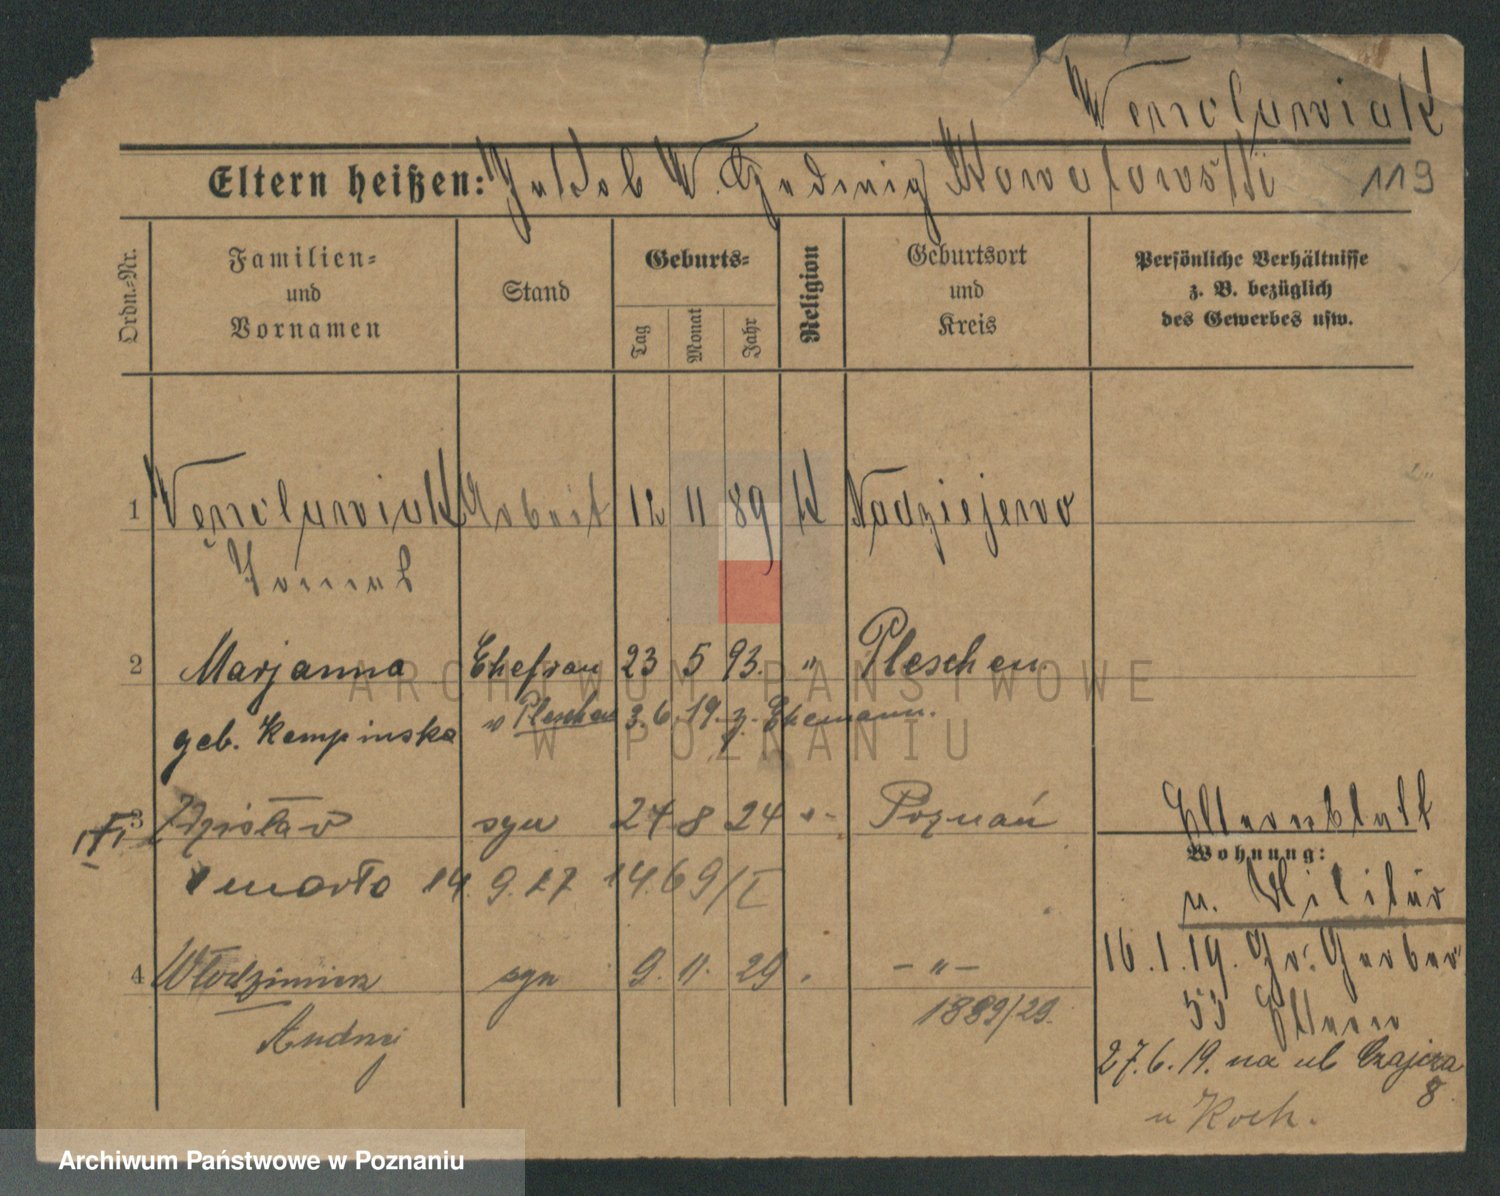 Wencluwiak
Eltern heißen: Jakob W. Hedwig Kowalowski 119
Ordn.-Nr.
Familien-
und
Vornamen
Stand
Geburts-
Tag
Monat
Jahr
Religion
Geburtsort
und
Kreis
Persönliche Verhältnisse
z. B. bezüglich
des Gewerbes usw.
1 Arbeit 12 11 89 K Nadziejewo
2 Marjanna Ehefrau 23 5 93. " Pleschen
geb. Kempinska v Pleschen 3.6.19. z. Ehemann.
3 syn 24 8 24 Poznań
14.9.27 14.69/I
4 Włodzimierz syn 9. 11. 29 - " -
Andrzej
1889/29.
Elternblatt
Wohnung:
u. Militär
16.1.19. Gr. Gerber
53 Eltern
27.6.19. na ul Czajcza
8
u Koch.
ARCHIWUM PAŃSTWOWE
W POZNANIU
Archiwum Państwowe w Poznaniu